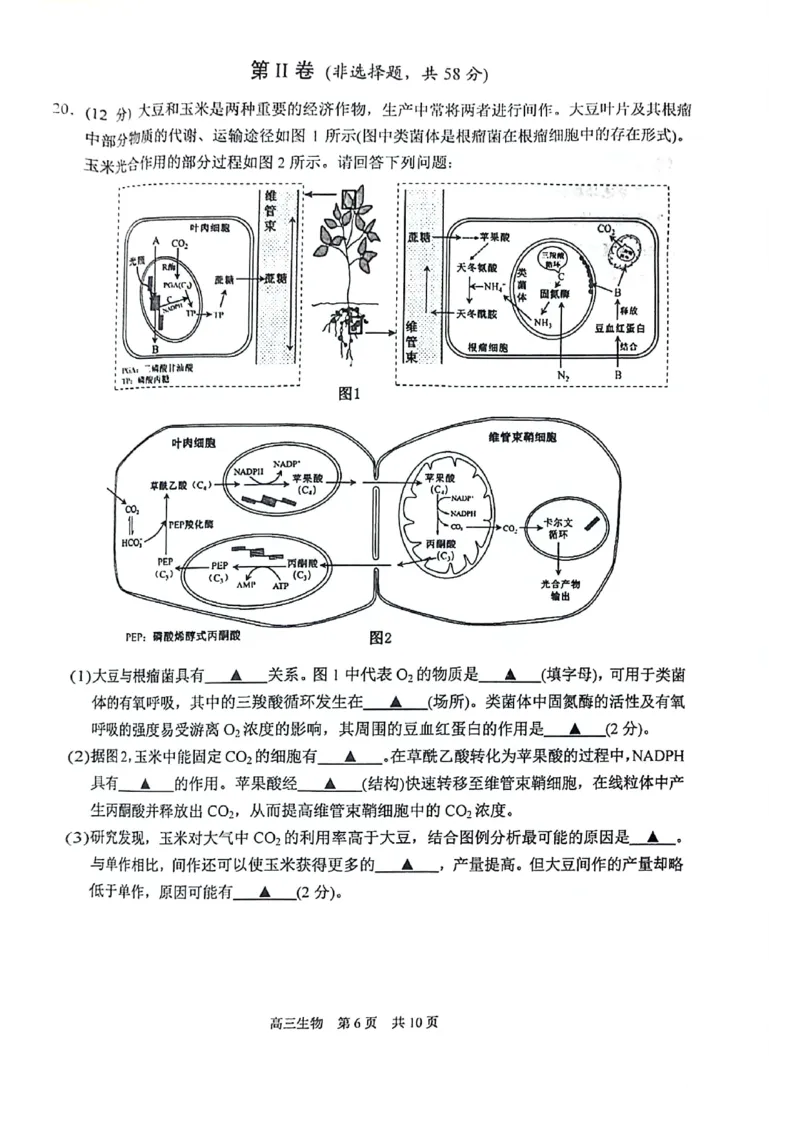 第 II 卷 (非选择题，共 58 分)
20. (12 分) 大豆和玉米是两种重要的经济作物，生产中常将两者进行间作。大豆叶片及其根瘤
中部分物质的代谢、运输途径如图 1 所示(图中类菌体是根瘤菌在根瘤细胞中的存在形式)。
玉米光合作用的部分过程如图 2 所示。请回答下列问题:
维管束
叶肉细胞
A
CO₂
光照
R酶
PGA(C₃)
C
NADPH
TP
TP
蔗糖
蔗糖
B
PGA: 三磷酸甘油酸
TP: 磷酸丙糖
蔗糖
苹果酸
天冬氨酸
NH₄⁺
天冬酰胺
维管束
根瘤细胞
类菌体
三羧酸循环
C
固氮酶
NH₃
N₂
CO₂
B
释放
豆血红蛋白
结合
B
图1
叶肉细胞
维管束鞘细胞
草酰乙酸 (C₄)
NADPH
NADP⁺
苹果酸
(C₄)
苹果酸
(C₄)
NADP⁺
NADPH
CO₂
丙酮酸
(C₃)
CO₂
卡尔文
循环
光合产物
输出
CO₂
HCO₃⁻
PEP羧化酶
PEP
(C₃)
PEP
(C₃)
AMP
ATP
丙酮酸
(C₃)
PEP: 磷酸烯醇式丙酮酸
图2
(1)大豆与根瘤菌具有 ▲ 关系。图 1 中代表 O₂ 的物质是 ▲ (填字母)，可用于类菌
体的有氧呼吸，其中的三羧酸循环发生在 ▲ (场所)。类菌体中固氮酶的活性及有氧
呼吸的强度易受游离 O₂ 浓度的影响，其周围的豆血红蛋白的作用是 ▲ (2 分)。
(2)据图2,玉米中能固定 CO₂ 的细胞有 ▲ 。在草酰乙酸转化为苹果酸的过程中,NADPH
具有 ▲ 的作用。苹果酸经 ▲ (结构)快速转移至维管束鞘细胞，在线粒体中产
生丙酮酸并释放出 CO₂，从而提高维管束鞘细胞中的 CO₂ 浓度。
(3)研究发现，玉米对大气中 CO₂ 的利用率高于大豆，结合图例分析最可能的原因是 ▲ 。
与单作相比，间作还可以使玉米获得更多的 ▲ ，产量提高。但大豆间作的产量却略
低于单作，原因可能有 ▲ (2 分)。
高三生物 第 6 页 共 10 页